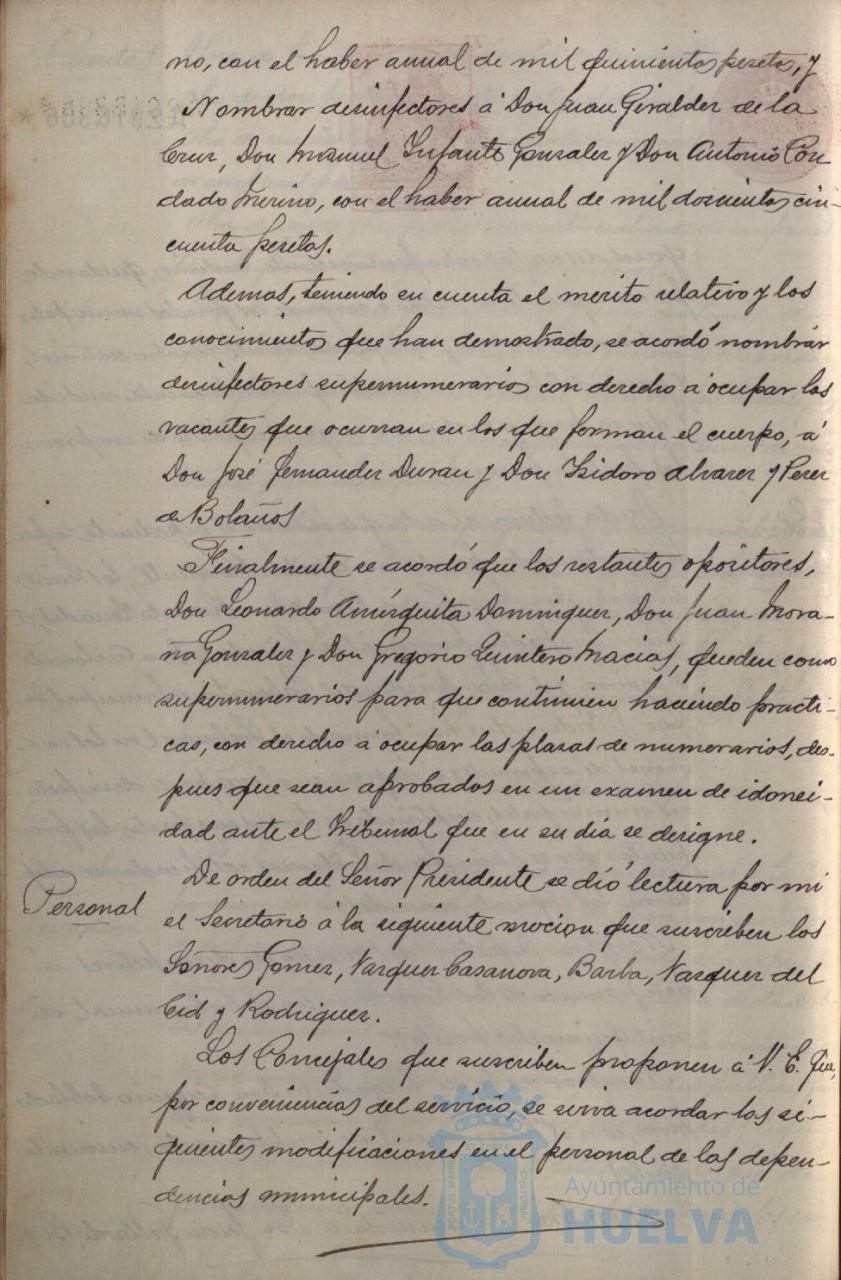 no, con el haber anual de mil quinientas pesetas, y
Nombrar desinfectores á Don Juan Giralder de la
Cruz, Don Manuel Infante Gonzalez y Don Antonio Con
dado Merino, con el haber anual de mil doscientas cin-
cuenta pesetas.
Ademas, teniendo en cuenta el merito relativo y los
conocimientos que han demostrado, se acordó nombrar
desinfectores supernumerarios con derecho á ocupar las
vacantes que ocurran en los que forman el cuerpo, á
Don José Fernandez Duran y Don Isidoro Alvarez y Perez
de Bolaños
Finalmente se acordó que los restantes opositores,
Don Leonardo Amézquita Dominguez, Don Juan Mora-
ña Gonzalez y Don Gregorio Quintero Macias, queden como
supernumerarios para que continuen haciendo practi-
cas, con derecho á ocupar las plazas de numerarios, des-
pues que sean aprobados en un examen de idonei-
dad ante el Tribunal que en su dia se designe.
Personal
De orden del Señor Presidente se dió lectura por mi
el Secretario á la siguiente mocion que suscriben los
Señores Gomez, Vazquez Casanova, Barba, Vazquez del
Cid y Rodriguez.
Los Concejales que suscriben proponen á V. E. que,
por conveniencias del servicio, se sirva acordar las si-
guientes modificaciones en el personal de las depen-
dencias municipales.
Ayuntamiento de
HUELVA